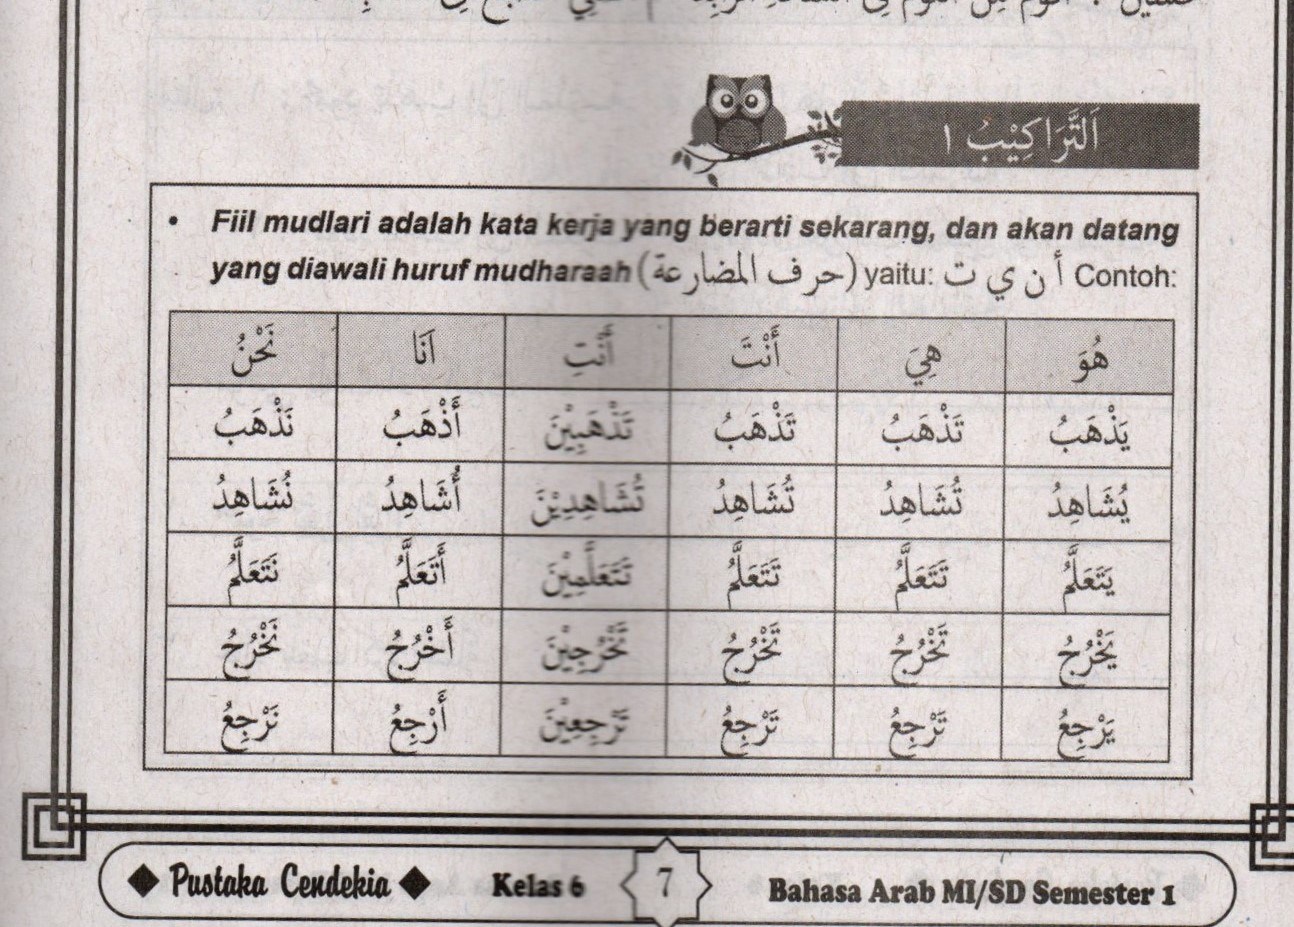 اَلتَّرَاكِيْبُ ١
• Fiil mudlari adalah kata kerja yang berarti sekarang, dan akan datang
yang diawali huruf mudharaah (حرف المضارعة) yaitu: أ ن ي ت Contoh:
هُوَ هِيَ أَنْتَ أَنْتِ اَنَا نَحْنُ
يَذْهَبُ تَذْهَبُ تَذْهَبُ تَذْهَبِيْنَ أَذْهَبُ نَذْهَبُ
يُشَاهِدُ تُشَاهِدُ تُشَاهِدُ تُشَاهِدِيْنَ أُشَاهِدُ نُشَاهِدُ
يَتَعَلَّمُ تَتَعَلَّمُ تَتَعَلَّمُ تَتَعَلَّمِيْنَ أَتَعَلَّمُ نَتَعَلَّمُ
يَخْرُجُ تَخْرُجُ تَخْرُجُ تَخْرُجِيْنَ أَخْرُجُ نَخْرُجُ
يَرْجِعُ تَرْجِعُ تَرْجِعُ تَرْجِعِيْنَ أَرْجِعُ نَرْجِعُ
Pustaka Cendekia Kelas 6 7 Bahasa Arab MI/SD Semester 1